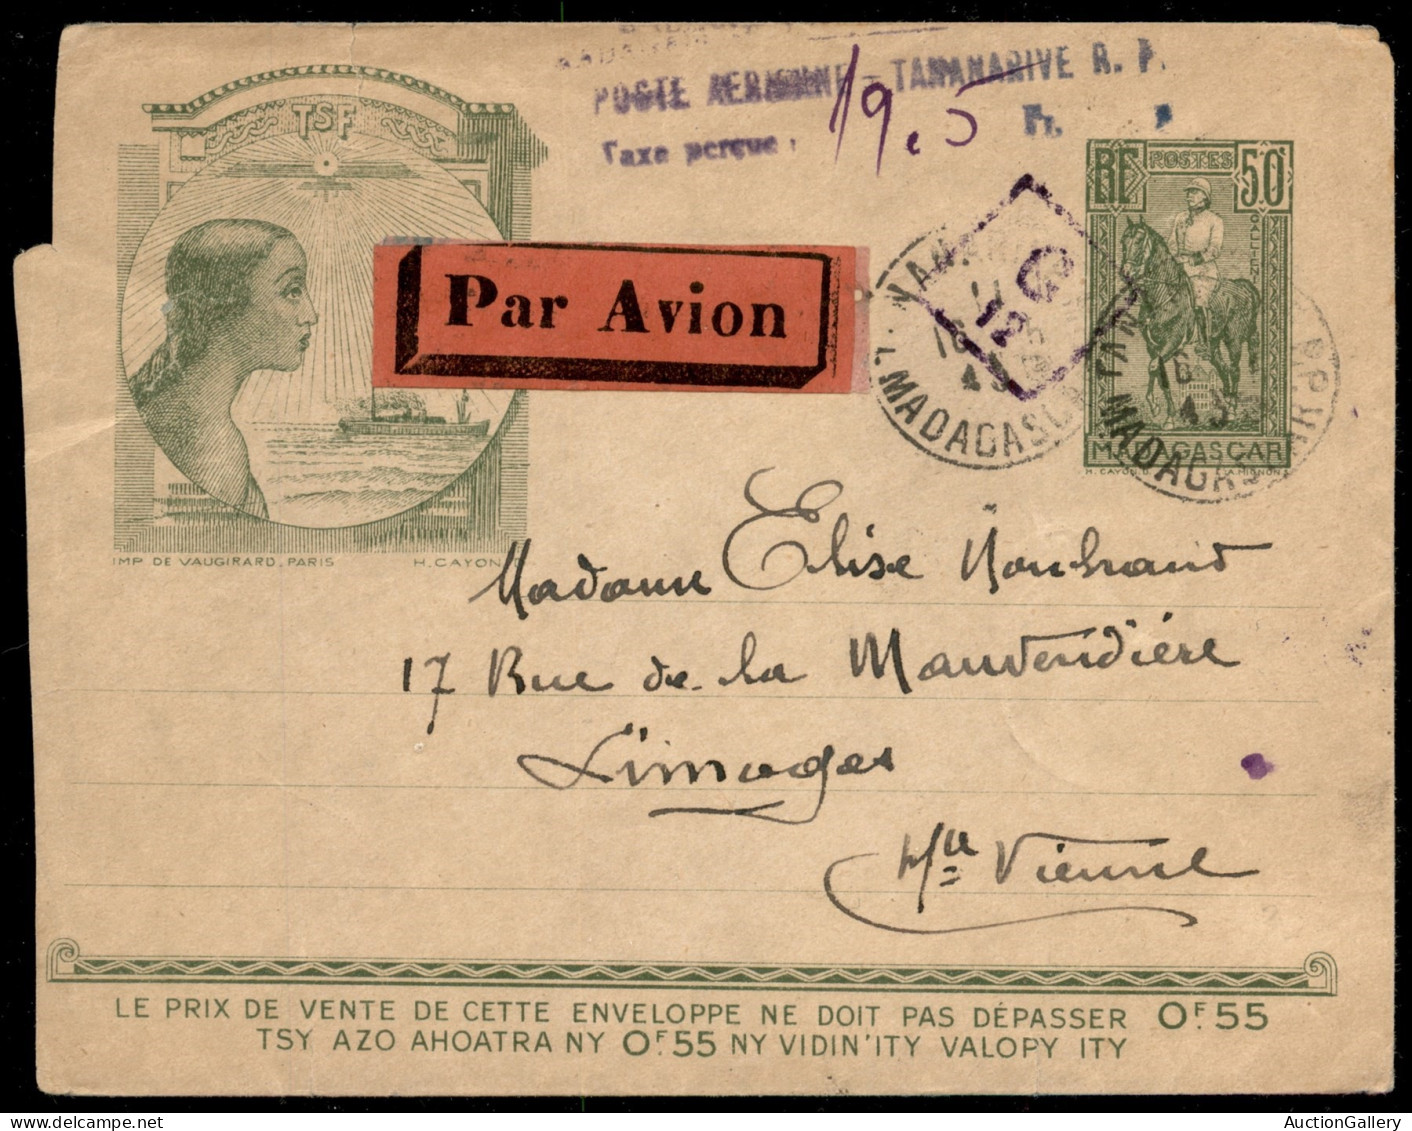 POSTE AERIENNE - TANANARIVE R. P.
Taxe perçue : 19.5 Fr.
TSF
RF POSTES 50c
GALLIENI
MADAGASCAR
H. CAYON
Par Avion
G
12
16
43
MADAGASCAR
16
43
MADAGASCAR
IMP DE VAUGIRARD, PARIS H. CAYON
Madame Elise
17 Rue de la Mauvendière
Limoges
Hte Vienne
LE PRIX DE VENTE DE CETTE ENVELOPPE NE DOIT PAS DÉPASSER 0F.55
TSY AZO AHOATRA NY 0F.55 NY VIDIN'ITY VALOPY ITY
AuctionGallery